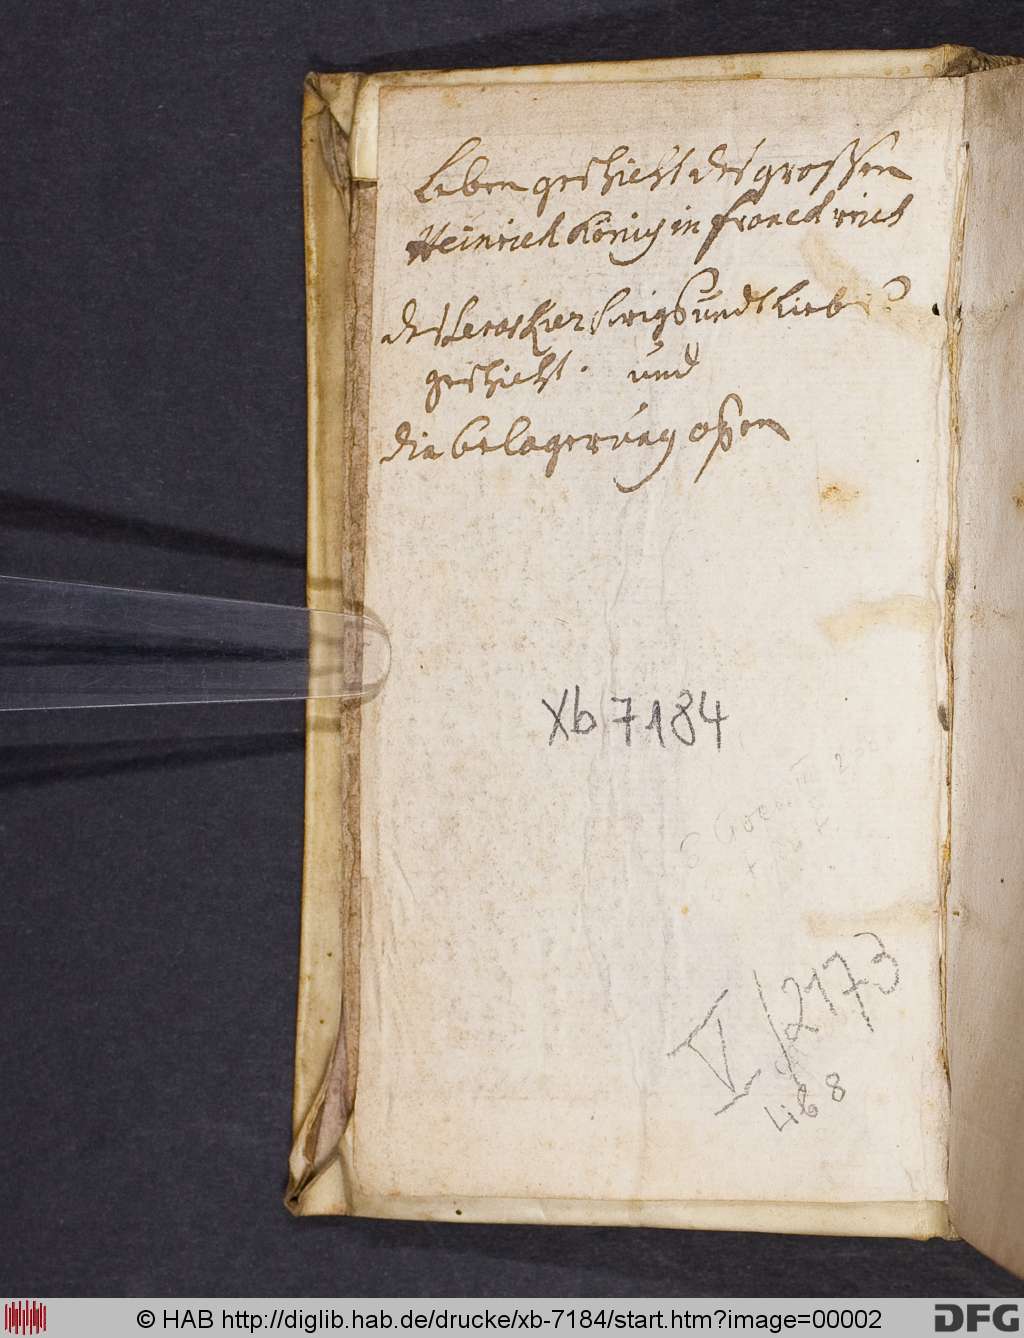 Leben geschicht des grossen
Heinrich König in franckreich
des Seraskier
undt Lieb
geschicht. und
die belagerung ofen
Xb 7184
V/2173
Lib 8
© HAB http://diglib.hab.de/drucke/xb-7184/start.htm?image=00002
DFG